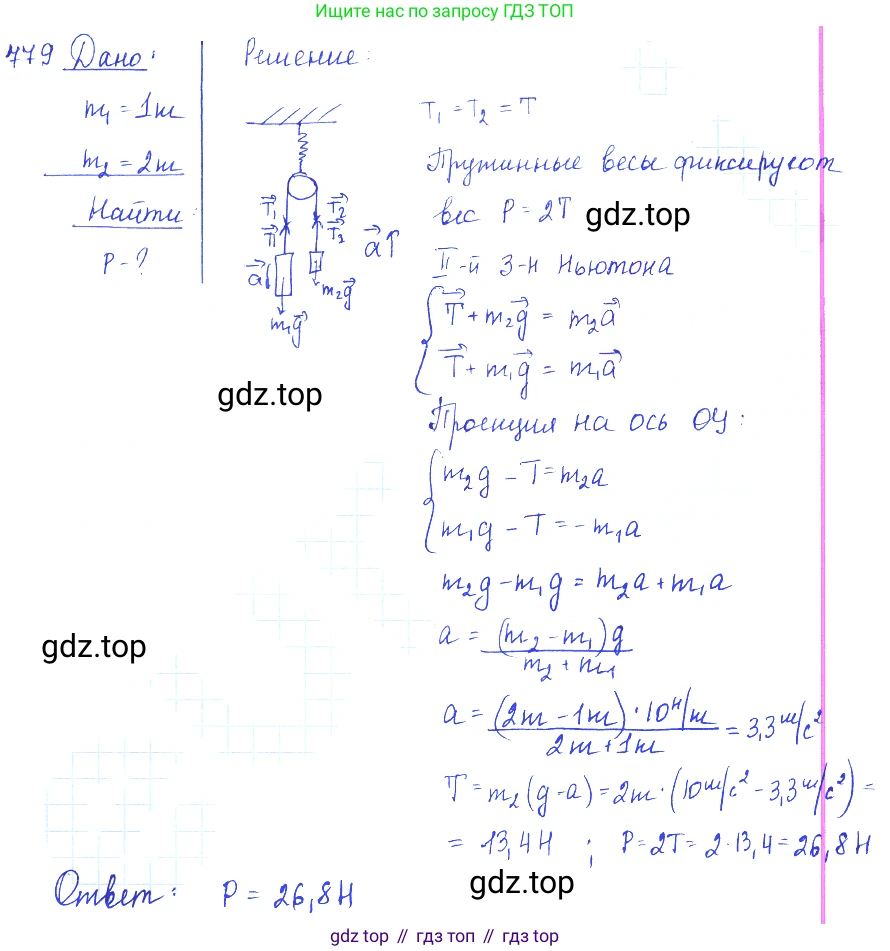 Ищите нас по запросу ГДЗ ТОП
779 Дано:
m₁ = 1 кг
m₂ = 2 кг
Найти:
P - ?
Решение:
T₁ T₂
T₁ T₂
a a
m₁g m₂g
T₁ = T₂ = T
Пружинные весы фиксируют
вес P = 2T
gdz.top
II-й З-н Ньютона
T + m₂g = m₂a
T + m₁g = m₁a
gdz.top
Проекция на ось OY:
m₂g - T = m₂a
m₁g - T = - m₁a
m₂g - m₁g = m₂a + m₁a
gdz.top
a = (m₂ - m₁)g / m₂ + m₁
a = (2кг - 1кг) · 10 Н/кг / 2кг + 1кг = 3,3 м/с²
T = m₂(g - a) = 2кг · (10 м/с² - 3,3 м/с²) =
= 13,4 Н ; P = 2T = 2 · 13,4 = 26,8 Н
Ответ: P = 26,8 Н
gdz.top
gdz top // гдз топ // gdz top